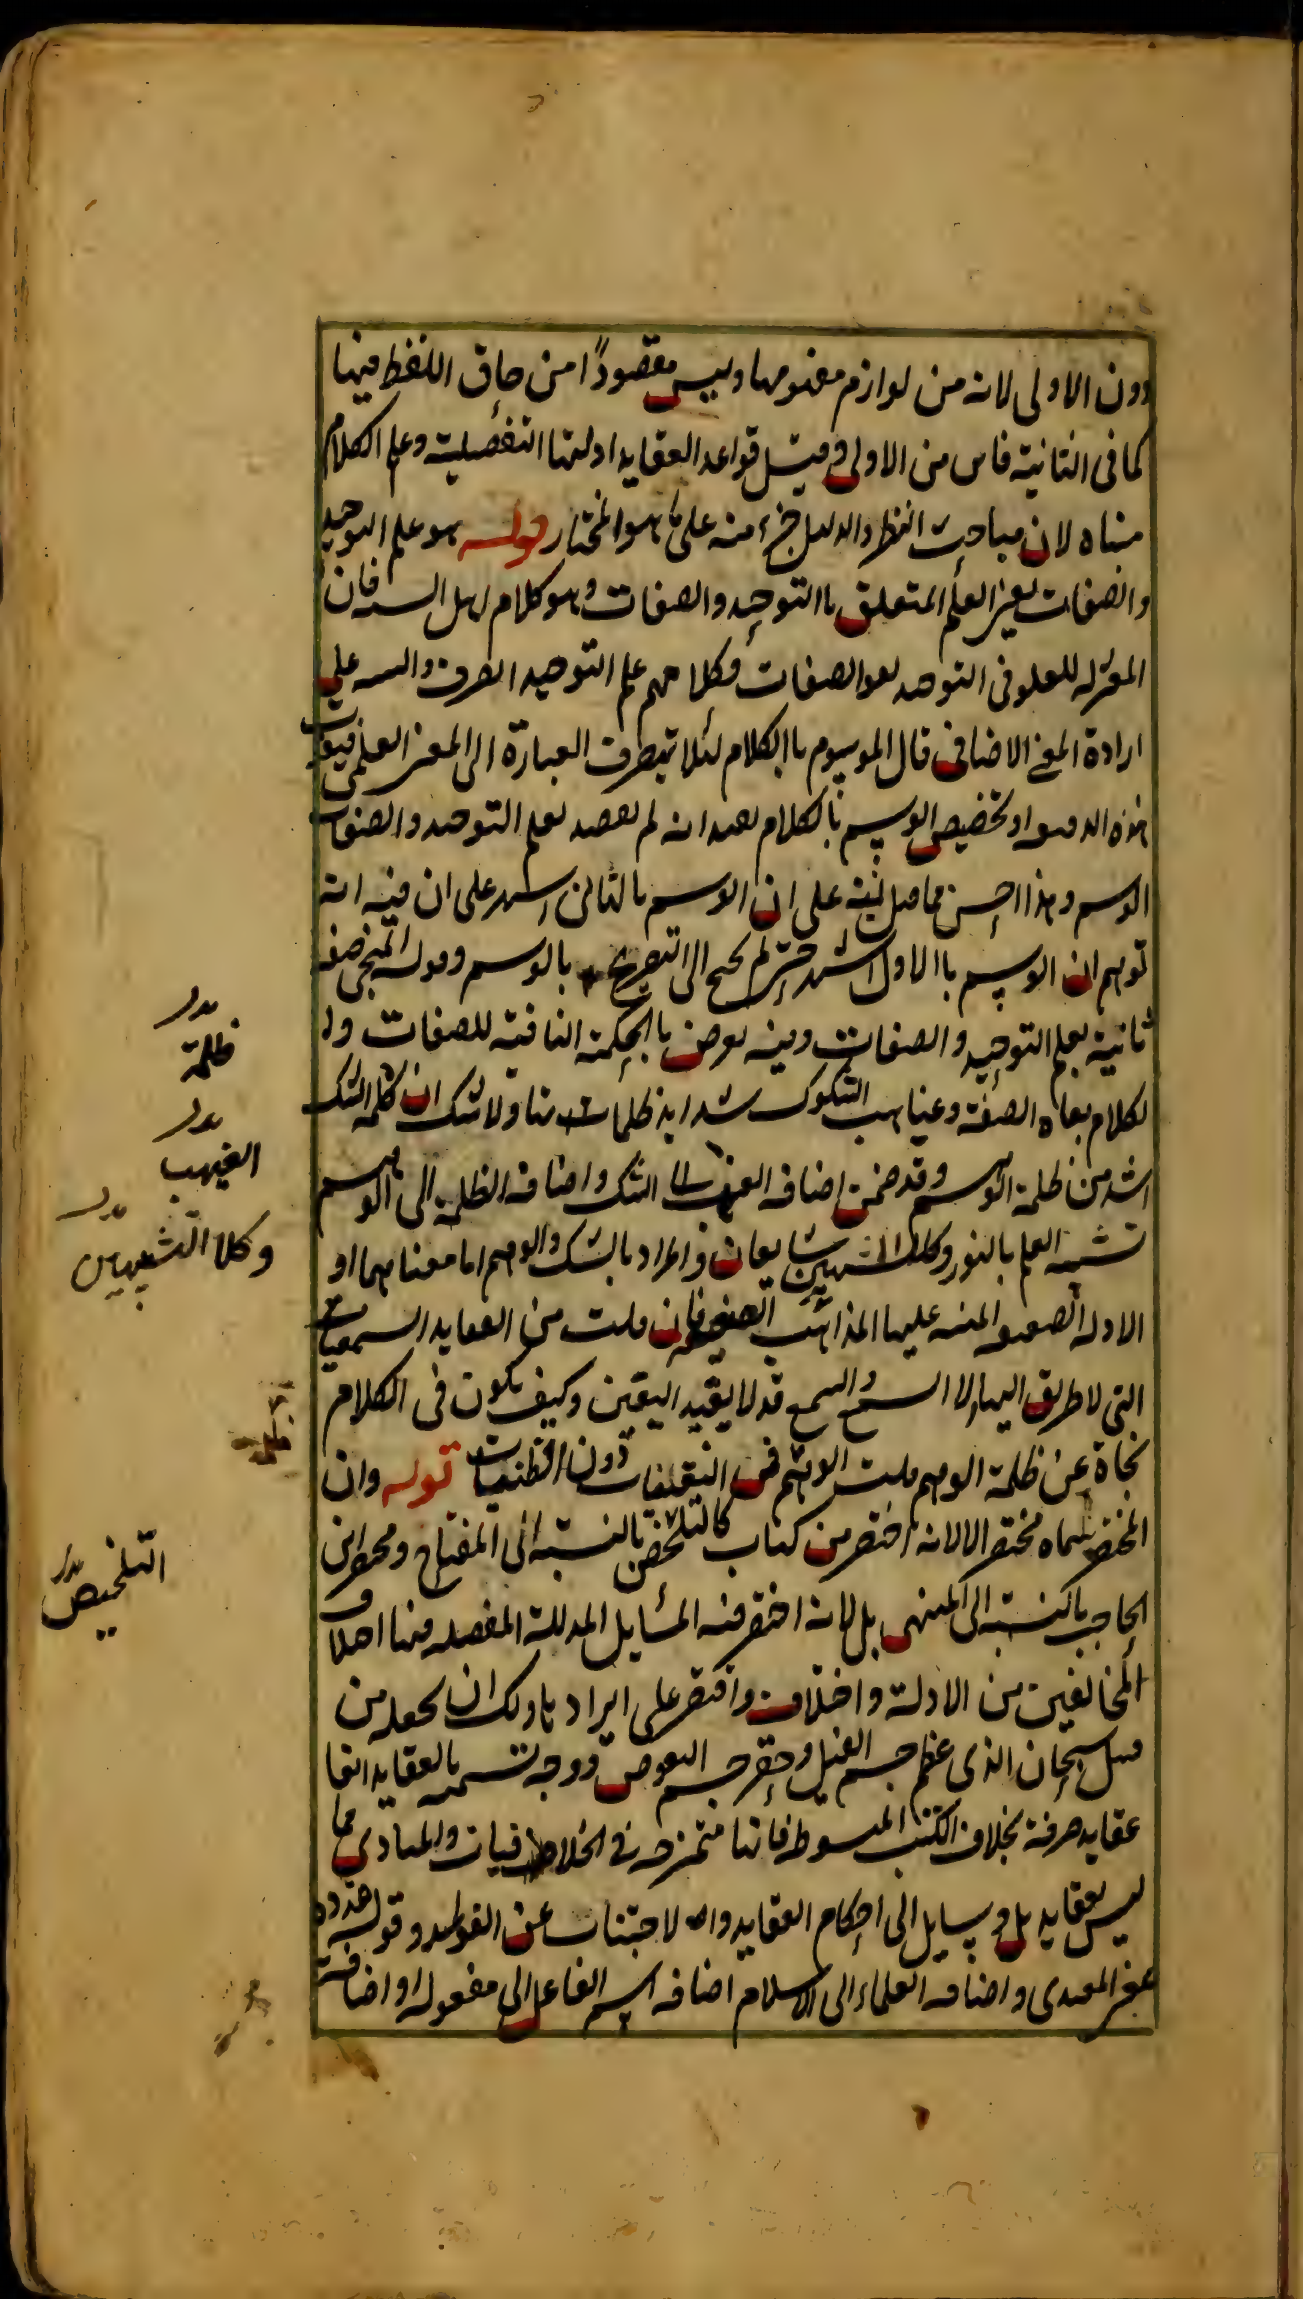 دون الاولى لانه من لوازم مفهومها وليس مقصودًا من حاق اللفظ فيها
كما فى الثانية فاس من الاولى وقيل قواعد العقايد ادلتها التفصيلية وعلم الكلام
مبناه لان مباحث النظر والدليل جزء منه على ما هو المختار قوله هو علم التوحيد
والصفات يعنى العلم المتعلق باالتوحيد والصفات وهو كلام اهل السنه فان
المعتزله للغلو فى التوحيد نفوا الصفات فكلامهم علم التوحيد الصرف والتنبيه على
ارادة المعنى الاضافى قال الموسوم باالكلام لئلا تنصرف العبارة الى المعنى العلمى فيفوت
هذه الدقيقه او تخصيص الوسم بالكلام بعيد انه لم يقصد بعلم التوحيد والصفات
الوسم وهذا احسن مما قيل نبه على ان الوسم بالثانى اشهر على ان فيه انه
توهم ان الوسم باالاول اشهر حتى لم يحتج الى التصريح بالوسم وقوله المنجى صفة
ثانية بعلم التوحيد والصفات وفيه تعريض باالحكمة النافية للصفات ولا
لكلام نفاه الصفة وغياهب الشكوك شدايد ظلمات تناولا شك ان ظلمة الشك
اشد من ظلمة الوهم وقد ضمن اضافه الغيهب الى الشك واضافه الظلمة الى الوهم
تشبيه العلم بالنور وكلا التشبيهين شايعان والمراد بالشك والوهم اما معناهما او
الادله الضعيفه المبنيه عليها المذاهب الضعيفه فان قلت من العقايد السمعيات
التى لا طريق اليها الا السمع والسمع قد لا يفيد اليقين وكيف يكون فى الكلام
نجاة عن ظلمة الوهم قلت الوهم فى اليقينيات دون الظنيات قوله وان
المختصر سماه مختصرا لا لانه اختصر من كتاب كالتلخيص بالنسبة الى المفتاح ومختصر ابن
الحاجب بالنسبة الى المنتهى بل لانه اختصر فيه المسايل المدللة المفصله فيها اختلاف
المخالفين من الادلة واختلاف واقتصر على ايراد ما ولك ان تجعله من
قبيل سبحان الذى عظم جسم الفيل وحقر جسم البعوض ووجه تسميته بالعقايد انها
عقايد صرفة بخلاف الكتب المبسوطه فانها ممتزجه فى الخلافيات والمبادى مما
ليس بعقايد بل وسايل الى احكام العقايد والاجتناب عن الفوايد وقوله قدوة
بمعنى المقتدى واضافه العلماء الى الاسلام اضافه اسم الفاعل الى مفعوله او اضافة
ظلمة
الغيهب
وكلا التشبيهين
التلخيص